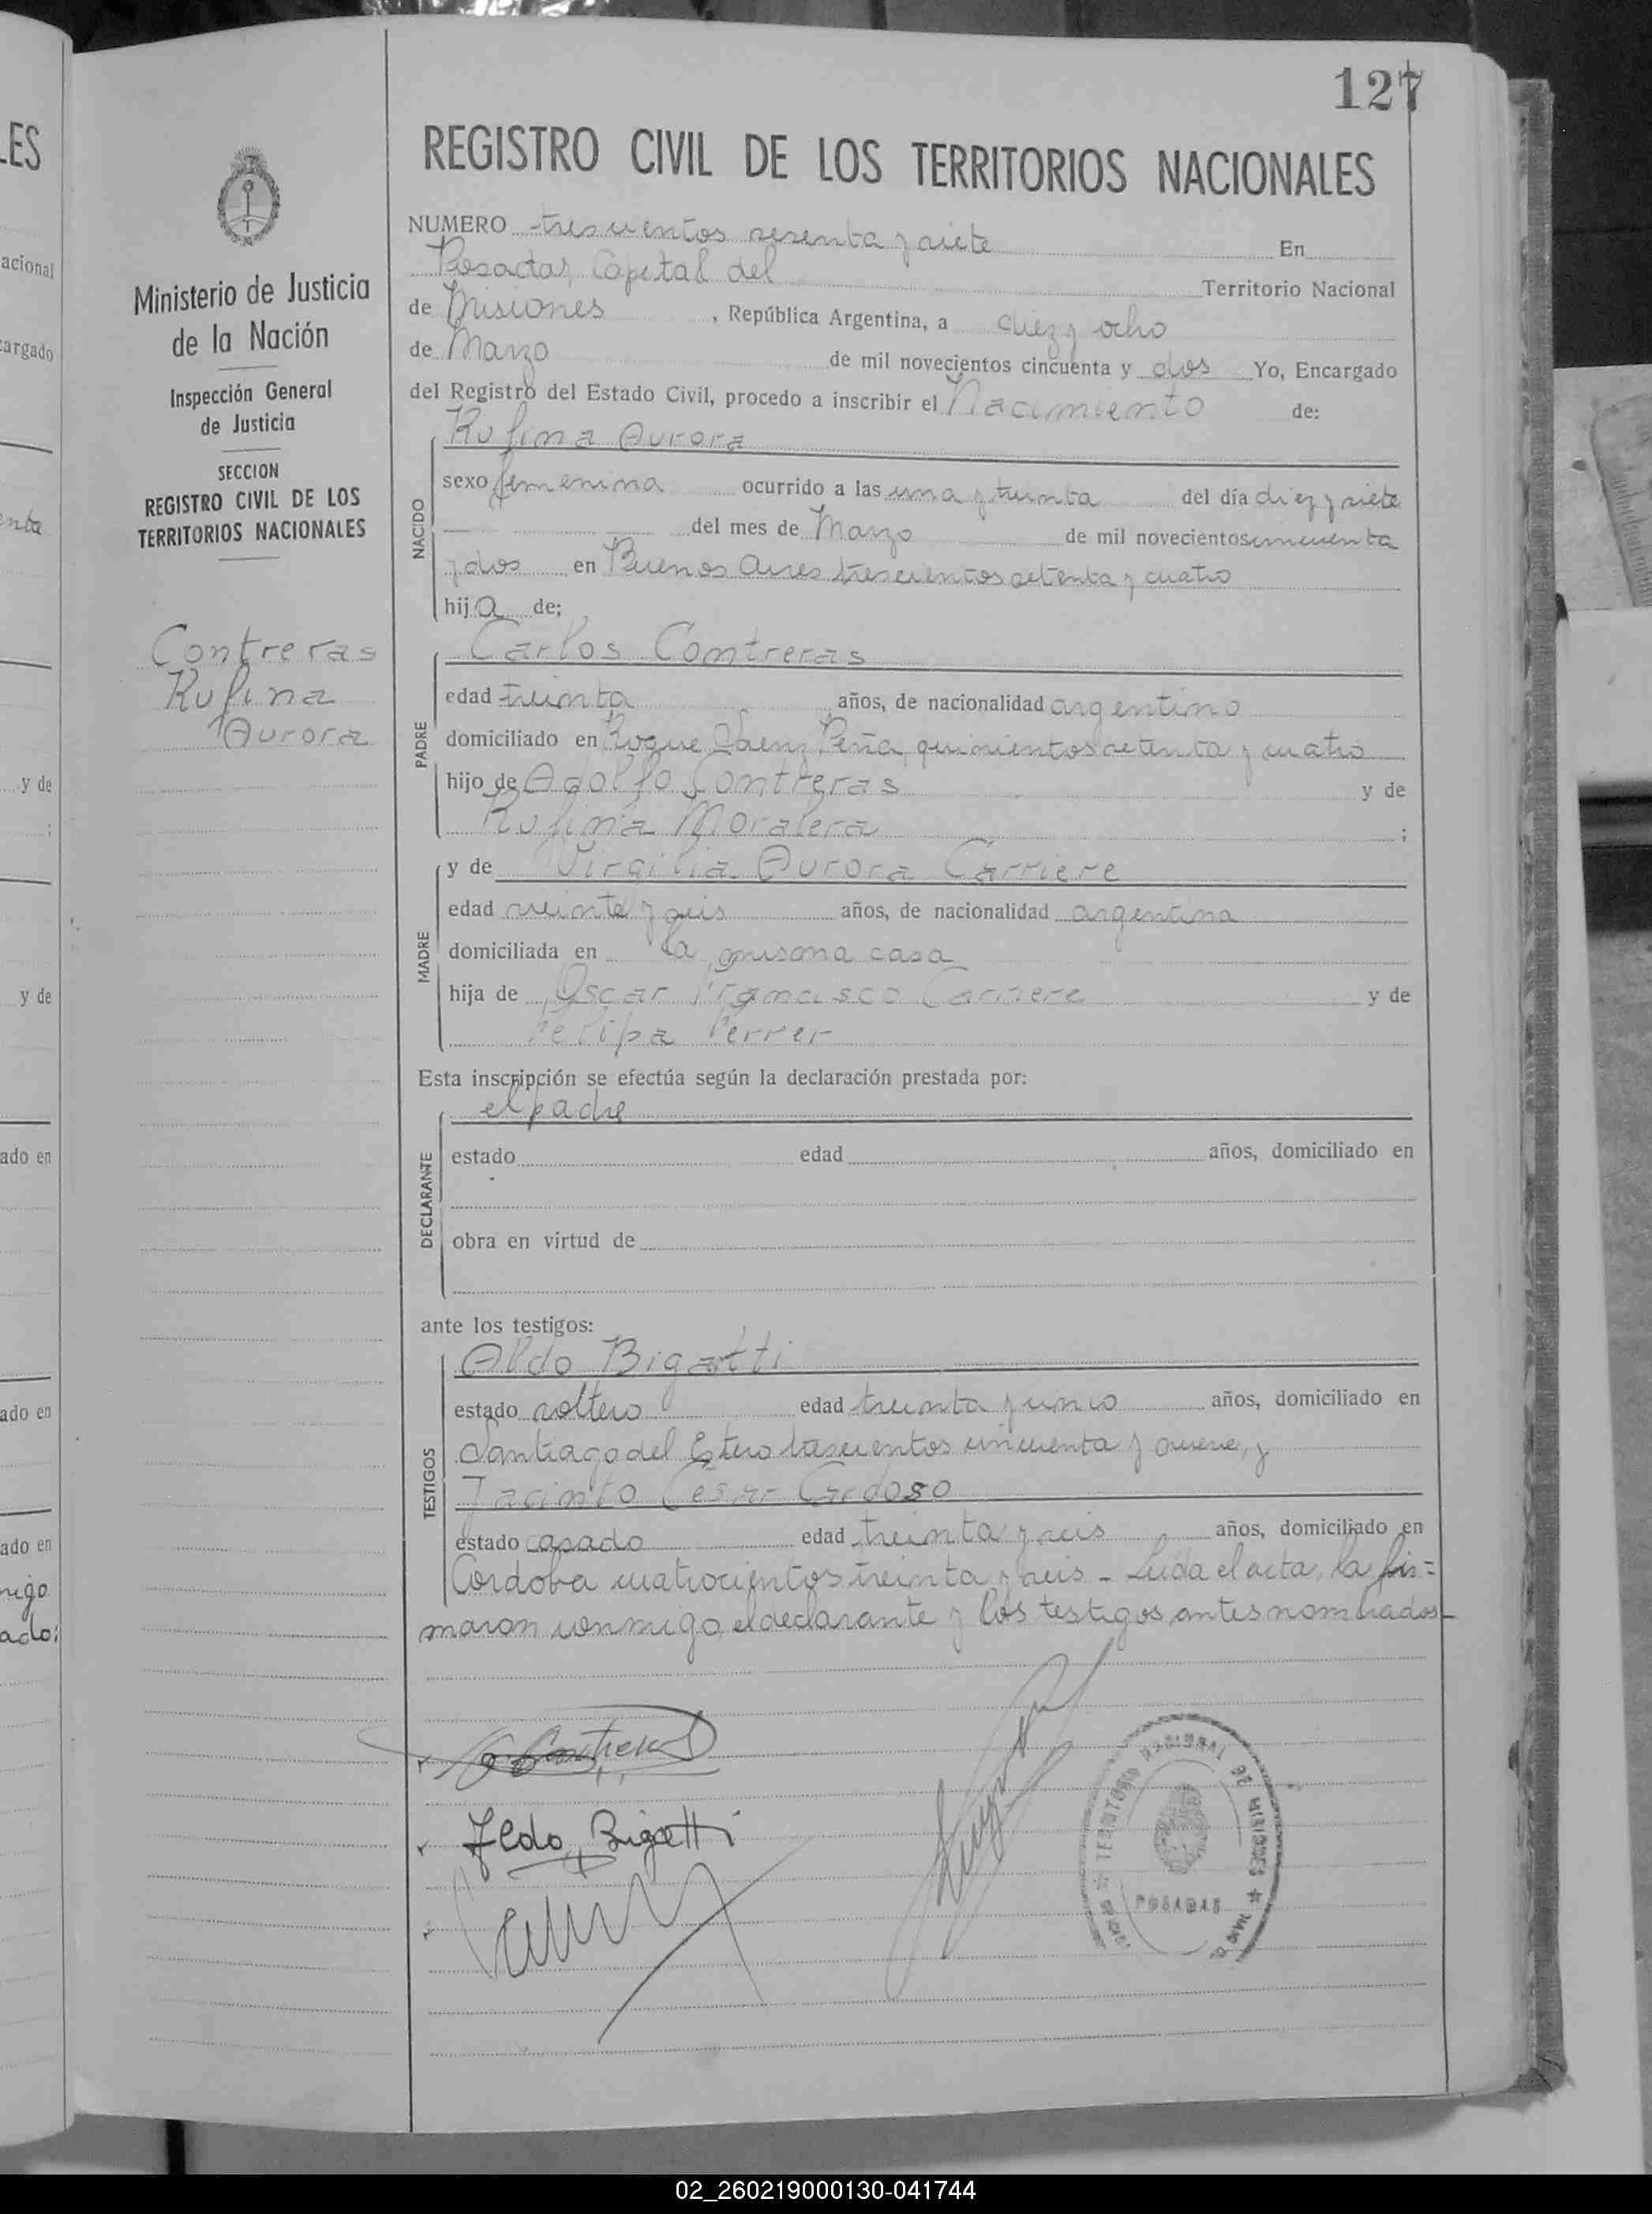 127
REGISTRO CIVIL DE LOS TERRITORIOS NACIONALES
NUMERO trescientos sesenta y siete En
Posadas, Capital del Territorio Nacional
de Misiones, República Argentina, a diez y ocho
de Marzo de mil novecientos cincuenta y dos Yo, Encargado
del Registro del Estado Civil, procedo a inscribir el Nacimiento de:
Rufina Aurora
NACIDO
sexo femenina ocurrido a las una y treinta del día diez y siete
del mes de Marzo de mil novecientos cincuenta
y dos en Buenos Aires trescientos setenta y cuatro
hija de;
PADRE
Carlos Contreras
edad treinta años, de nacionalidad argentino
domiciliado en Roque Saenz Peña, quinientos setenta y cuatro
hijo de Adolfo Contreras y de
Rufina Moralera ;
MADRE
y de Virgilia Aurora Carriere
edad veinte y seis años, de nacionalidad argentina
domiciliada en la misma casa
hija de Oscar Francisco Carriere y de
Felipa Ferrer
Esta inscripción se efectúa según la declaración prestada por:
DECLARANTE
el padre
estado edad años, domiciliado en
obra en virtud de
ante los testigos:
TESTIGOS
Aldo Bigatti
estado soltero edad treinta y uno años, domiciliado en
Santiago del Estero trescientos cincuenta y nueve, y
Jacinto Cesar Cardoso
estado casado edad treinta y seis años, domiciliado en
Cordoba cuatrocientos treinta y seis - Leida el acta, la fir=
maron conmigo, el declarante y los testigos antes nombrados-
Contreras
Aldo Bigatti
TERRITORIO NACIONAL DE MISIONES
POSADAS
Ministerio de Justicia
de la Nación
Inspección General
de Justicia
SECCION
REGISTRO CIVIL DE LOS
TERRITORIOS NACIONALES
Contreras
Rufina
Aurora
LES
acional
cargado
enta
y de
;
y de
ado en
ado en
ado en
migo
ado:
02_260219000130-041744